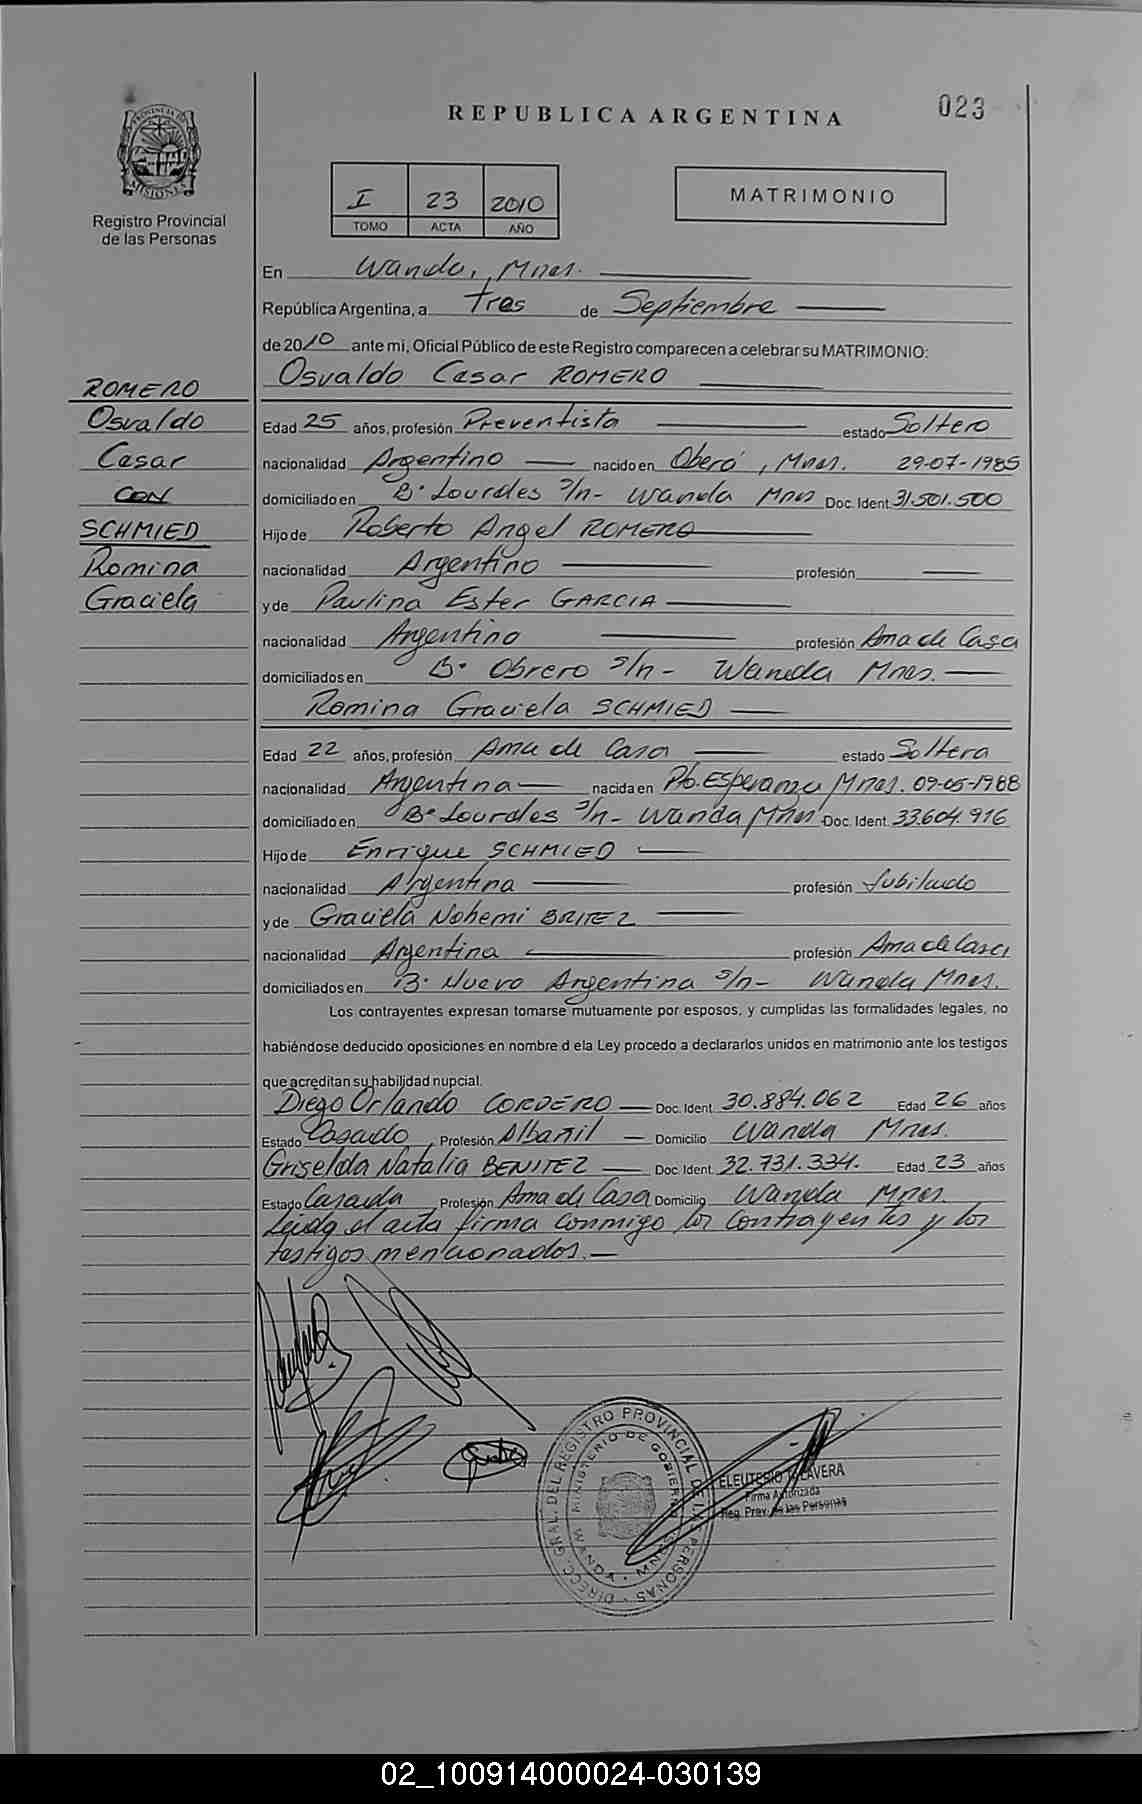 023
REPUBLICA ARGENTINA
PROVINCIA DE MISIONES
Registro Provincial
de las Personas
I 23 2010
TOMO ACTA AÑO
MATRIMONIO
En Wanda, Mnes.
República Argentina, a tres de Septiembre
de 2010 ante mi, Oficial Público de este Registro comparecen a celebrar su MATRIMONIO:
Osvaldo Cesar ROMERO
ROMERO
Osvaldo
Cesar
CON
SCHMIED
Romina
Graciela
Edad 25 años, profesión Preventista estado Soltero
nacionalidad Argentino nacido en Oberá, Mnes. 29-07-1985
domiciliado en B° Lourdes s/n- Wanda Mnes Doc. Ident. 31.501.500
Hijo de Roberto Angel ROMERO
nacionalidad Argentino profesión
y de Paulina Ester GARCIA
nacionalidad Argentino profesión Ama de Casa
domiciliados en B° Obrero s/n- Wanda Mnes.
Romina Graciela SCHMIED
Edad 22 años, profesión Ama de Casa estado Soltera
nacionalidad Argentina nacida en Pto. Esperanza Mnes. 09-05-1988
domiciliado en B° Lourdes s/n- Wanda Mnes Doc. Ident. 33.604.916
Hijo de Enrique SCHMIED
nacionalidad Argentina profesión Jubilado
y de Graciela Nohemi BRITEZ
nacionalidad Argentina profesión Ama de Casa
domiciliados en B° Nuevo Argentina s/n- Wanda Mnes.
Los contrayentes expresan tomarse mutuamente por esposos, y cumplidas las formalidades legales, no
habiéndose deducido oposiciones en nombre d ela Ley procedo a declararlos unidos en matrimonio ante los testigos
que acreditan su habilidad nupcial.
Diego Orlando CORDERO Doc. Ident. 30.884.062 Edad 26 años
Estado Casado, Profesión Albañil Domicilio Wanda Mnes.
Griselda Natalia BENITEZ Doc. Ident. 32.731.334. Edad 23 años
Estado Casada, Profesión Ama de Casa Domicilio Wanda Mnes.
Leida el acta firma conmigo los contrayentes y los
testigos mencionados.
DIRECC. GRAL. DEL REGISTRO PROVINCIAL DE LAS PERSONAS
MINISTERIO DE GOBIERNO
WANDA - MNES
ELEUTERIO TALAVERA
Firma Autorizada
Reg. Prov. de las Personas
02_100914000024-030139